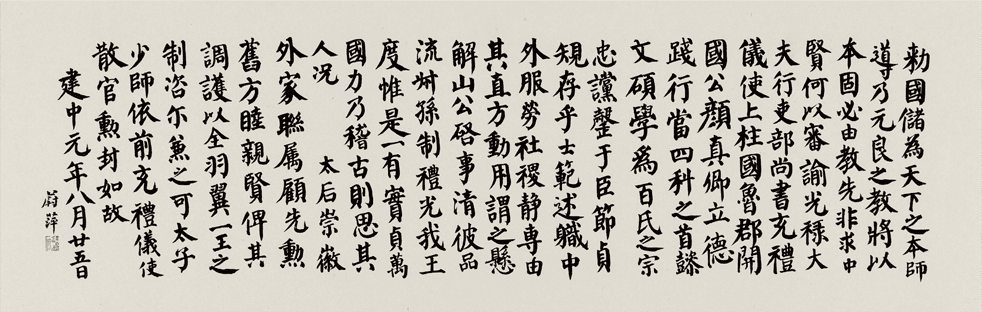 勅國儲為天下之本師
導乃元良之教將以
本固必由教先非求中
賢何以審諭光禄大
夫行吏部尚書充禮
儀使上柱國魯郡開
國公顏真卿立德
踐行當四科之首懿
文碩學為百氏之宗
忠讜罄于臣節貞
規存乎士範述職中
外服勞社稷静專由
其直方動用謂之懸
解山公啓事清彼品
流叔孫制禮光我王
度惟是一有實貞萬
國力乃稽古則思其
人況 太后崇徽
外家聯属顧先勲
舊方睦親賢俾其
調護以全羽翼一王之
制咨尔兼之可太子
少師依前充禮儀使
散官勲封如故
建中元年八月廿五日
蔚萍